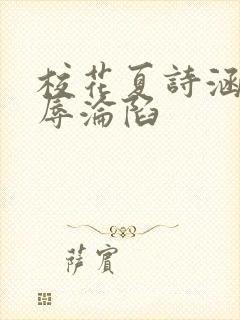 校花夏詩涵
辱淪陷
萨賓